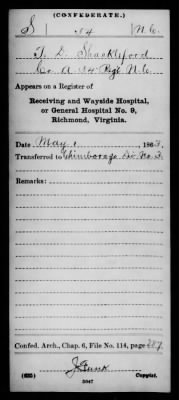 (CONFEDERATE.)
S 54 N.C.
T. D. Shackliford
Co. A 54 Regt N.C.
Appears on a Register of
Receiving and Wayside Hospital,
or General Hospital No. 9,
Richmond, Virginia.
Date May 1, 1863.
Transferred to Chimborazo
Remarks:
Confed. Arch., Chap. 6, File No. 114, page
(635)
Copyist.